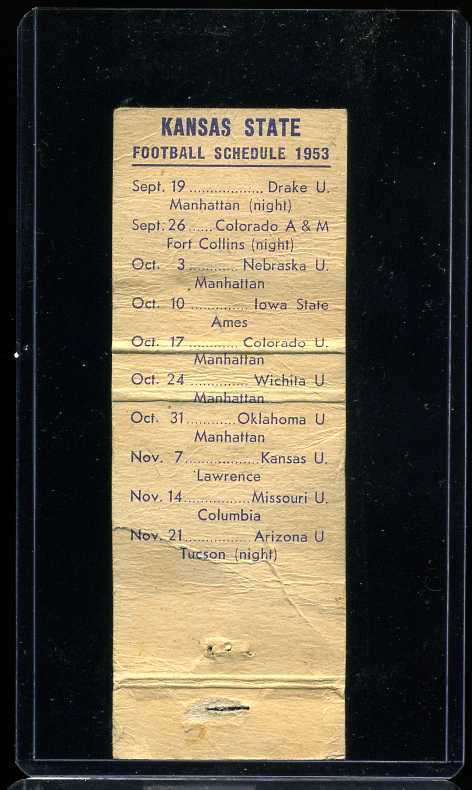 KANSAS STATE
FOOTBALL SCHEDULE 1953
Sept. 19 .................. Drake U.
Manhattan (night)
Sept. 26 ..... Colorado A & M
Fort Collins (night)
Oct. 3 ............ Nebraska U.
Manhattan
Oct. 10 .............. Iowa State
Ames
Oct. 17 ............ Colorado U.
Manhattan
Oct. 24 .............. Wichita U
Manhattan
Oct. 31 ............ Oklahoma U
Manhattan
Nov. 7 .................. Kansas U.
Lawrence
Nov. 14 ................ Missouri U.
Columbia
Nov. 21 ................ Arizona U
Tucson (night)